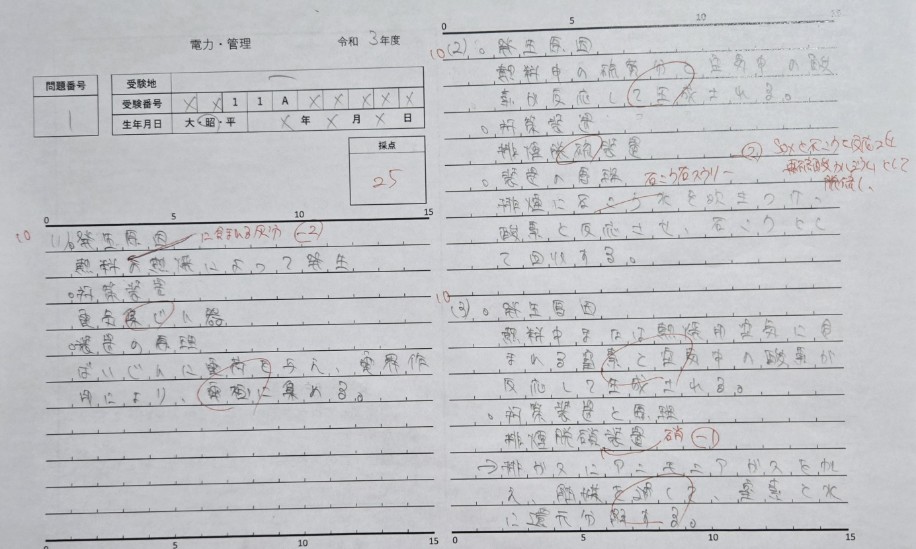 電力・管理 令和 3年度
問題番号
1
受験地
受験番号 X X 1 1 A X X X X X
生年月日 大・昭・平 X 年 X 月 X 日
採点
25
0 5 10 15
10
(1)。発生原因 に含まれる灰分 (-2)
燃料の燃焼によって発生
。対策装置
電気集じん器
。装置の原理
ばいじんに電荷を与え、電界作
用により、電極に集める。
0 5 10 15
0 5 10
10
(2)。発生原因
燃料中の硫黄分と空気中の酸
素が反応して生成される。
。対策装置
排煙脱硫装置 (2) SOxと石こうと反応させ
。装置の原理 石こう石スラリー として
排煙に石こう水を吹きつけ、
酸素と反応させ、石こうとし
て回収する。
10
(3)。発生原因
燃料中または燃焼用空気に含
まれる窒素と空気中の酸素が
反応して生成される。
。対策装置と原理
排煙脱硝装置 硝 (-1)
→排ガスにアンモニアガスを加
え、触媒を通して、窒素と水
に還元分解する。
0 5 10 15